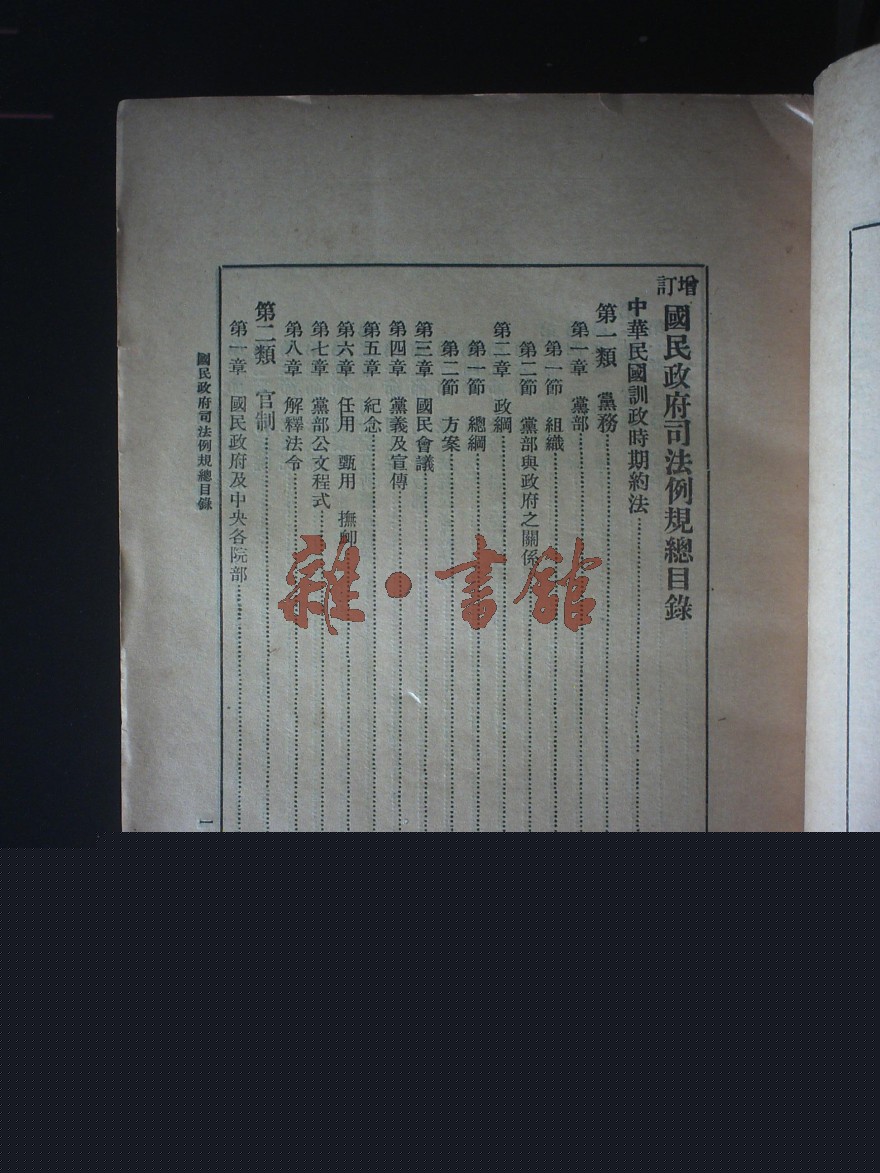 增訂國民政府司法例規總目錄
中華民國訓政時期約法
第一類　黨務
第一章　黨部
第一節　組織
第二節　黨部與政府之關係
第二章　政綱
第一節　總綱
第二節　方案
第三章　國民會議
第四章　黨義及宣傳
第五章　紀念
第六章　任用　甄用　撫卹
第七章　黨部公文程式
第八章　解釋法令
第二類　官制
第一章　國民政府及中央各院部
國民政府司法例規總目錄
一
雜·書館